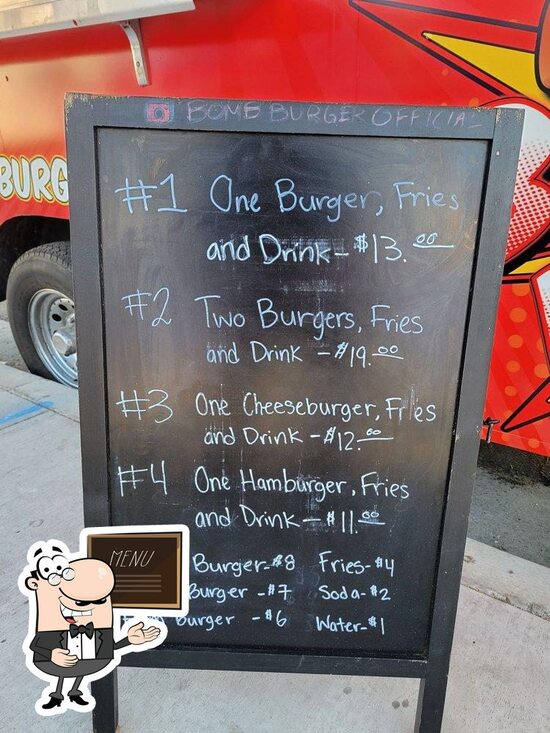 BOMB BURGER OFFICIAL
BURG
#1 One Burger, Fries
and Drink - $13.00
#2 Two Burgers, Fries
and Drink - $19.00
#3 One Cheeseburger, Fries
and Drink - $12.00
#4 One Hamburger, Fries
and Drink - $11.00
Burger - $8 Fries - $4
Burger - $7 Soda - $2
Burger - $6 Water - $1
MENU